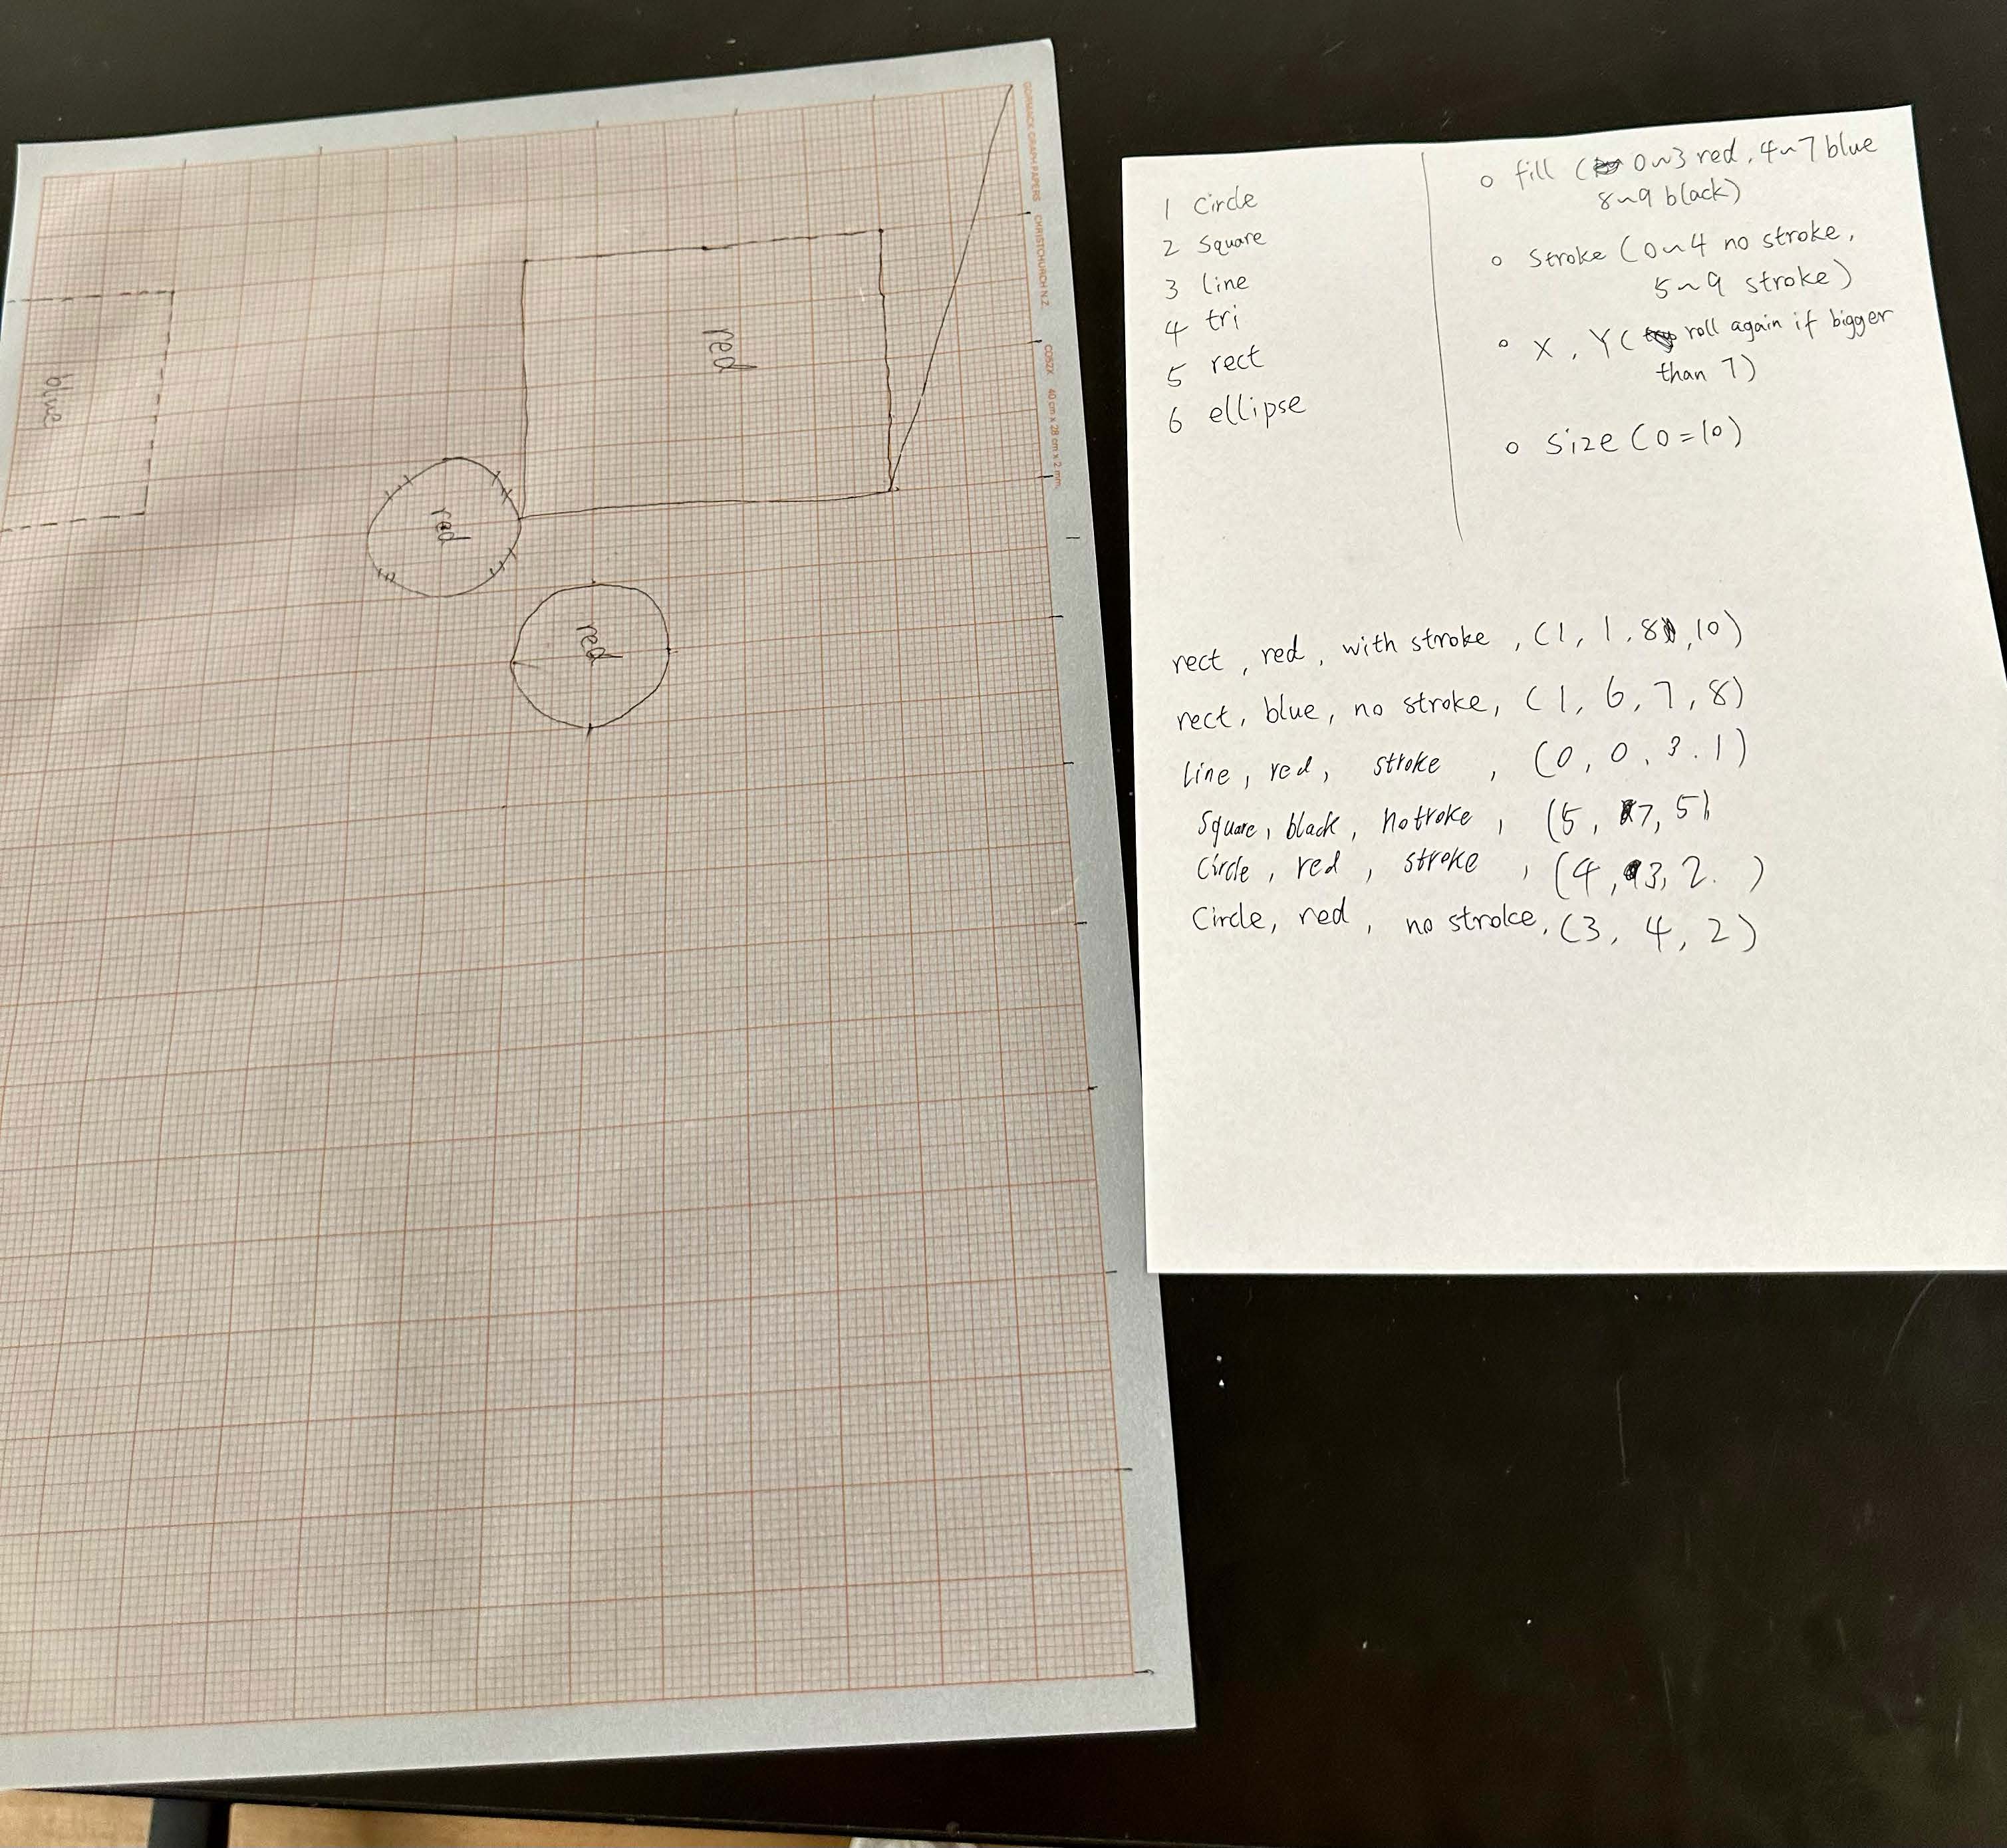 GORMACK GRAPH PAPERS CHRISTCHURCH N.Z. 40 cm x 28 cm x 2 mm.
red
blue
red
red
1 Circle
2 Square
3 line
4 tri
5 rect
6 ellipse
o fill ( 0~3 red, 4~7 blue
8~9 black)
o Stroke (0~4 no stroke,
5~9 stroke)
o X, Y ( roll again if bigger
than 7)
o Size (0=10)
rect, red, with stroke, (1, 1, 8, 10)
rect, blue, no stroke, (1, 6, 7, 8)
line, red, stroke, (0, 0, 3. 1)
Square, black, notroke, (5, 7, 5)
Circle, red, stroke, (4, 3, 2. )
Circle, red, no stroke, (3, 4, 2)